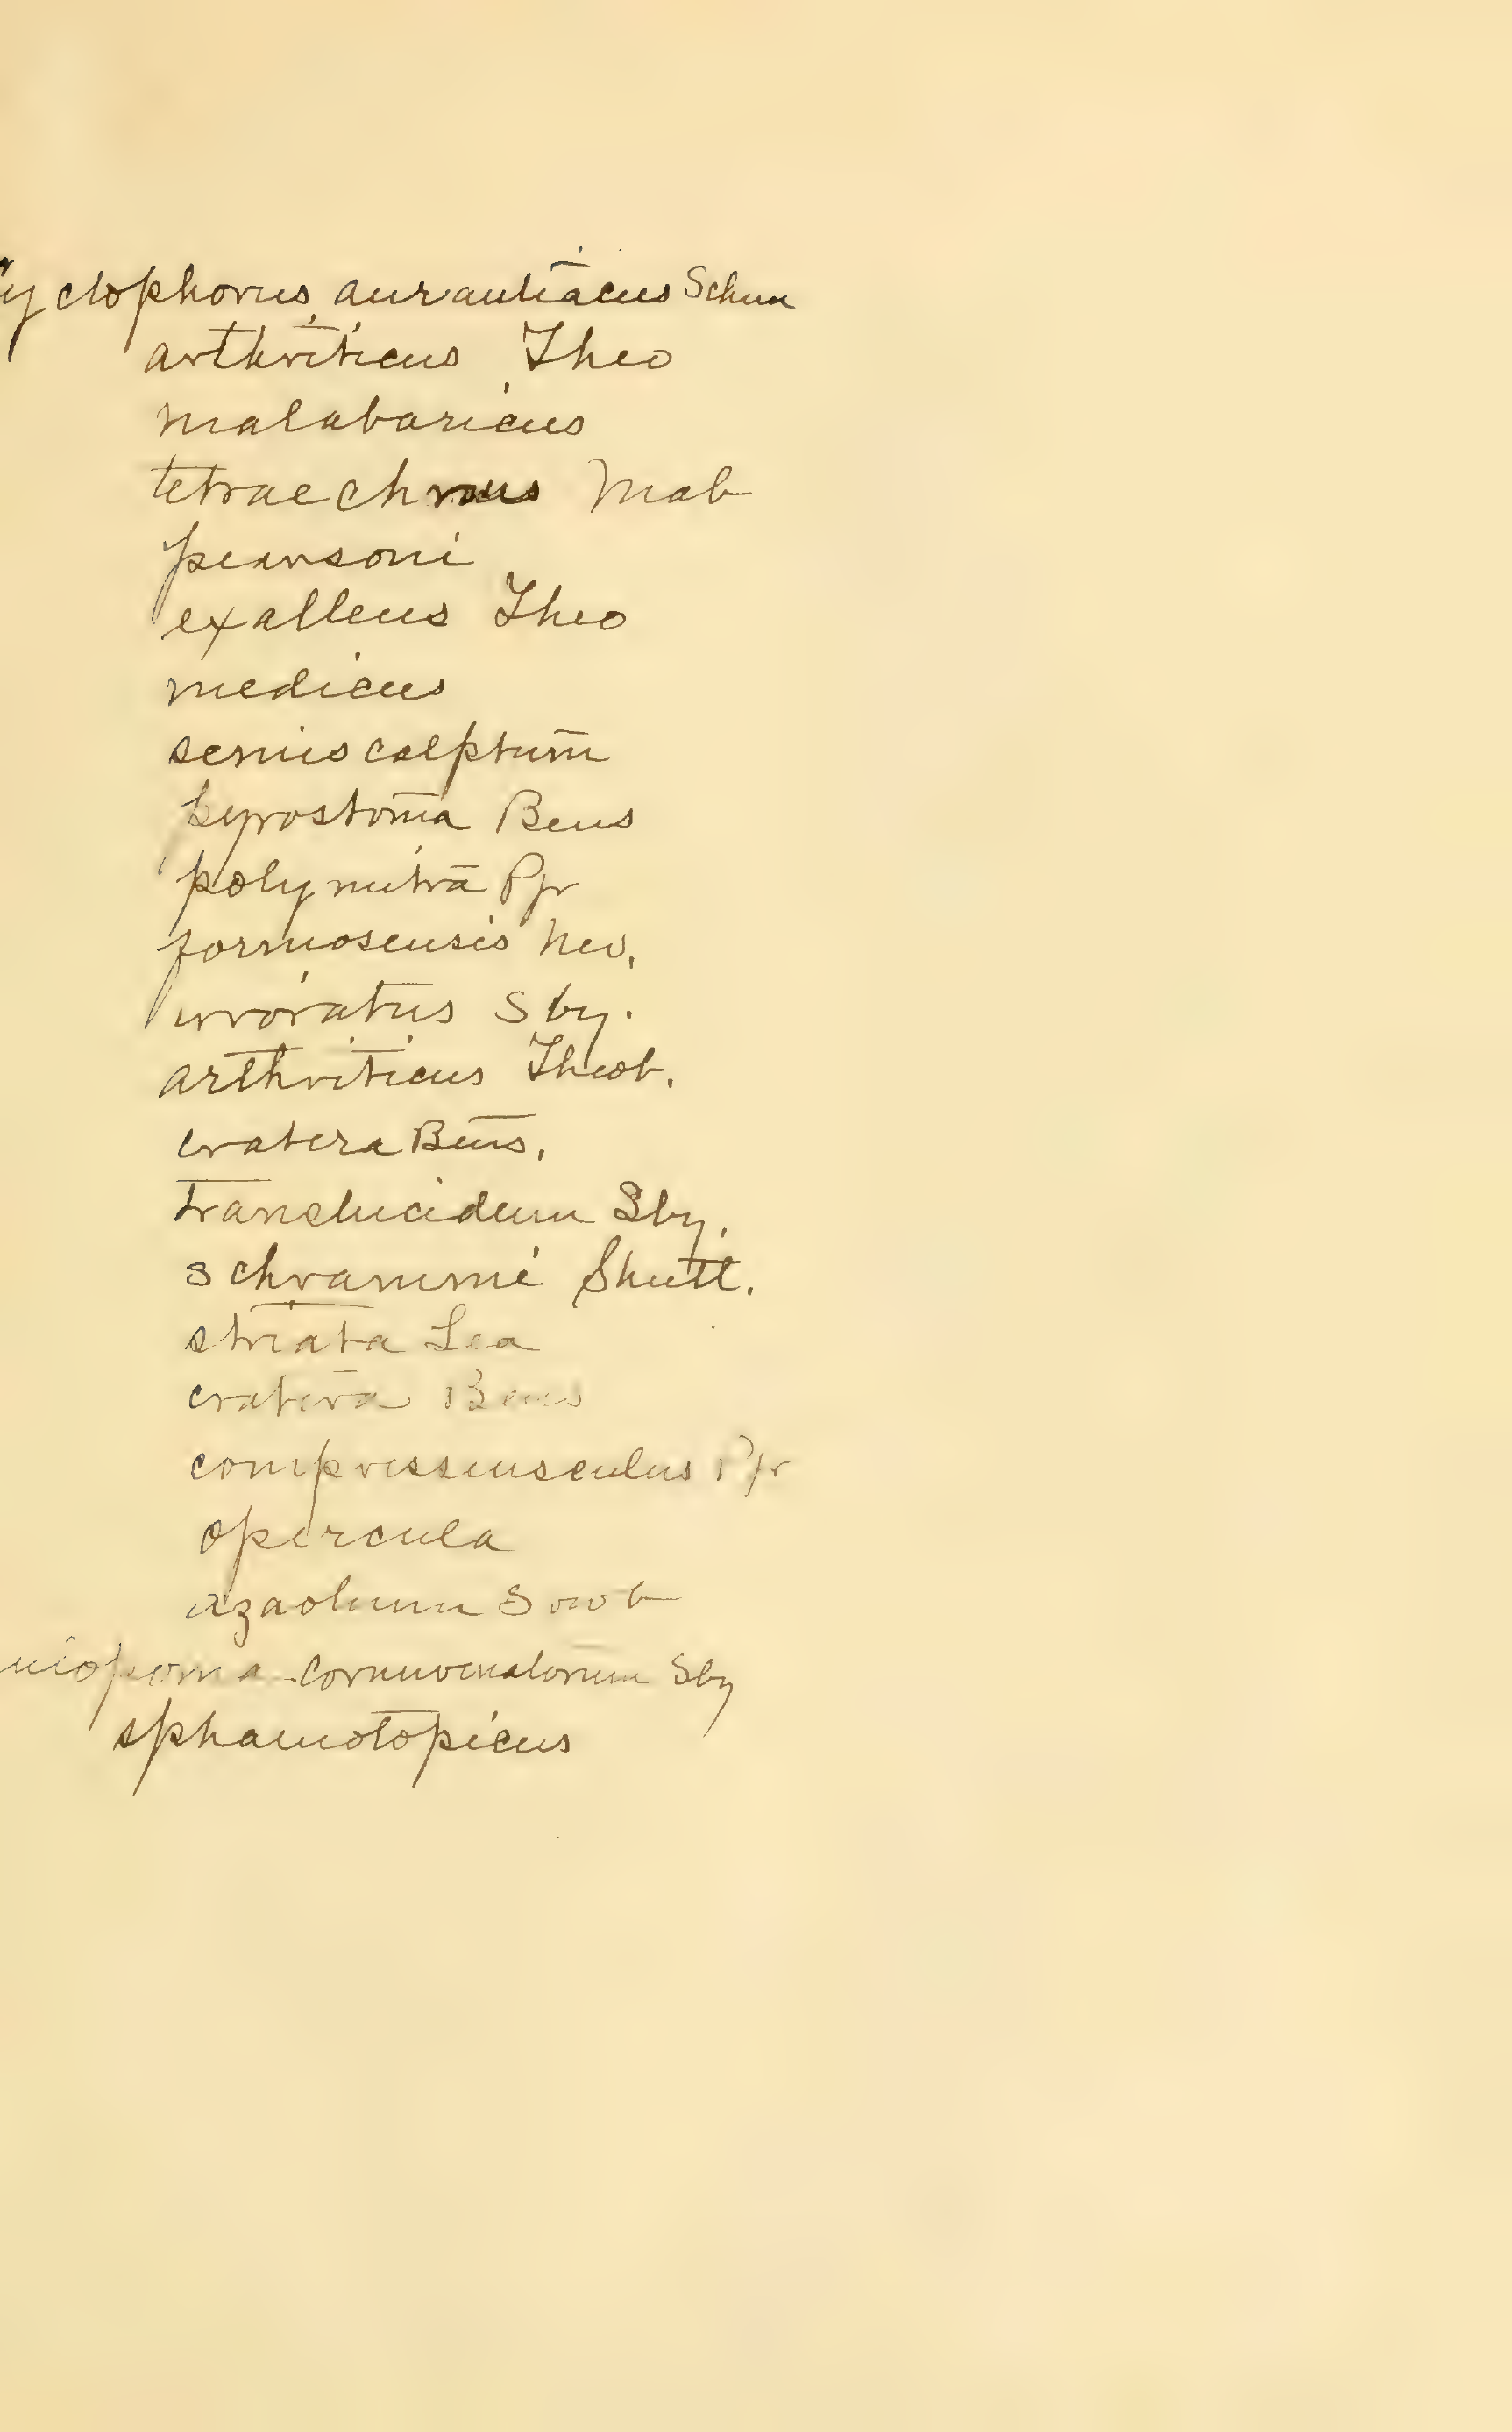 Cyclophorus aurantiacus Schum
arthriticus Theo
malabaricus
Mab
pearsoni
exallens Theo
medicus
semiscalptum
Bens
polynutra Pfr
formosensis Nev.
irroratus Sby.
arthriticus Theob.
cratera Bens.
translucidum Sby.
schrammi Shutt.
striata Lea
cratera Bens
compressiusculus Pfr
opercula
azaolum Sowb
cornuvenatorum Sby